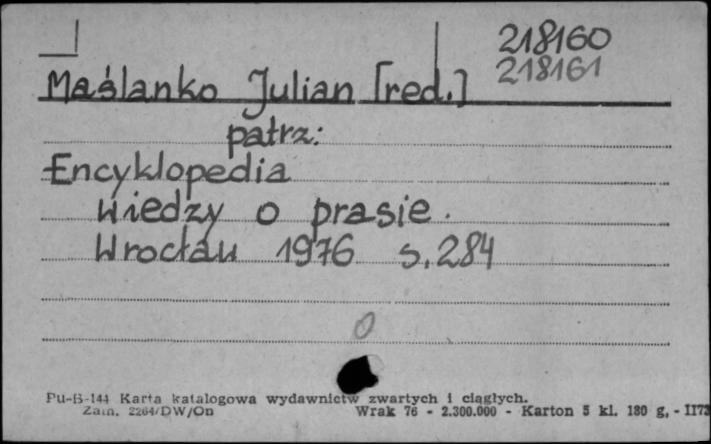 218160
218161
Maślanko Julian [red.]
patrz:
Encyklopedia
wiedzy o prasie.
Wrocław 1976 s. 284
0
Pu-B-144 Karta katalogowa wydawnictw zwartych i ciągłych.
Zam. 2264/DW/On Wrak 76 - 2.300.000 - Karton 5 kl. 180 g. - II73